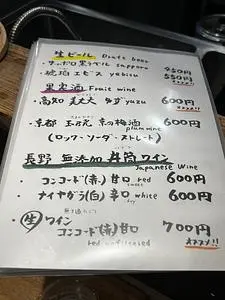 生ビール Draft beer
・サッポロ黒ラベル sapporo 450円
・琥珀ヱビス yebisu 550円
オススメ!!
果実酒 Fruit wine
・高知 ゆず yuzu 600円
オススメ!!
・京都 玉乃光 京の梅酒 600円
plum wine
(ロック・ソーダ・ストレート)
長野 無添加 井筒ワイン
Japanese Wine
・コンコード(赤) 甘口 red 600円
sweet
・ナイヤガラ(白) 辛口 white 600円
dry
・生ワイン
コンコード(赤) 甘口 700円
red オススメ!!